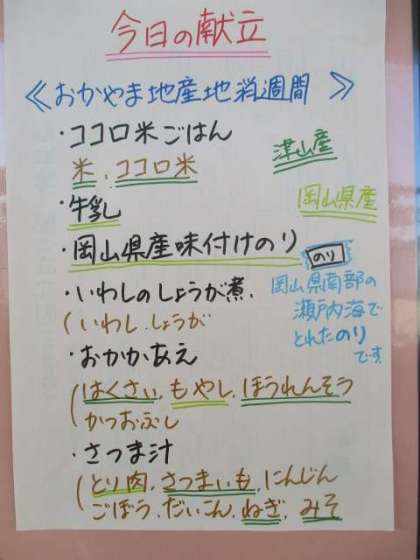 今日の献立
≪おかやま地産地消週間≫
・ココロ米ごはん
米、ココロ米
津山産
・牛乳
岡山県産
・岡山県産味付けのり
のり
岡山県南部の
瀬戸内海で
とれたのり
です
・いわしのしょうが煮.
(いわし.しょうが
・おかかあえ
(はくさい.もやし.ほうれんそう
かつおぶし
・さつま汁
(とり肉.さつまいも.にんじん
ごぼう.だいこん.ねぎ.みそ